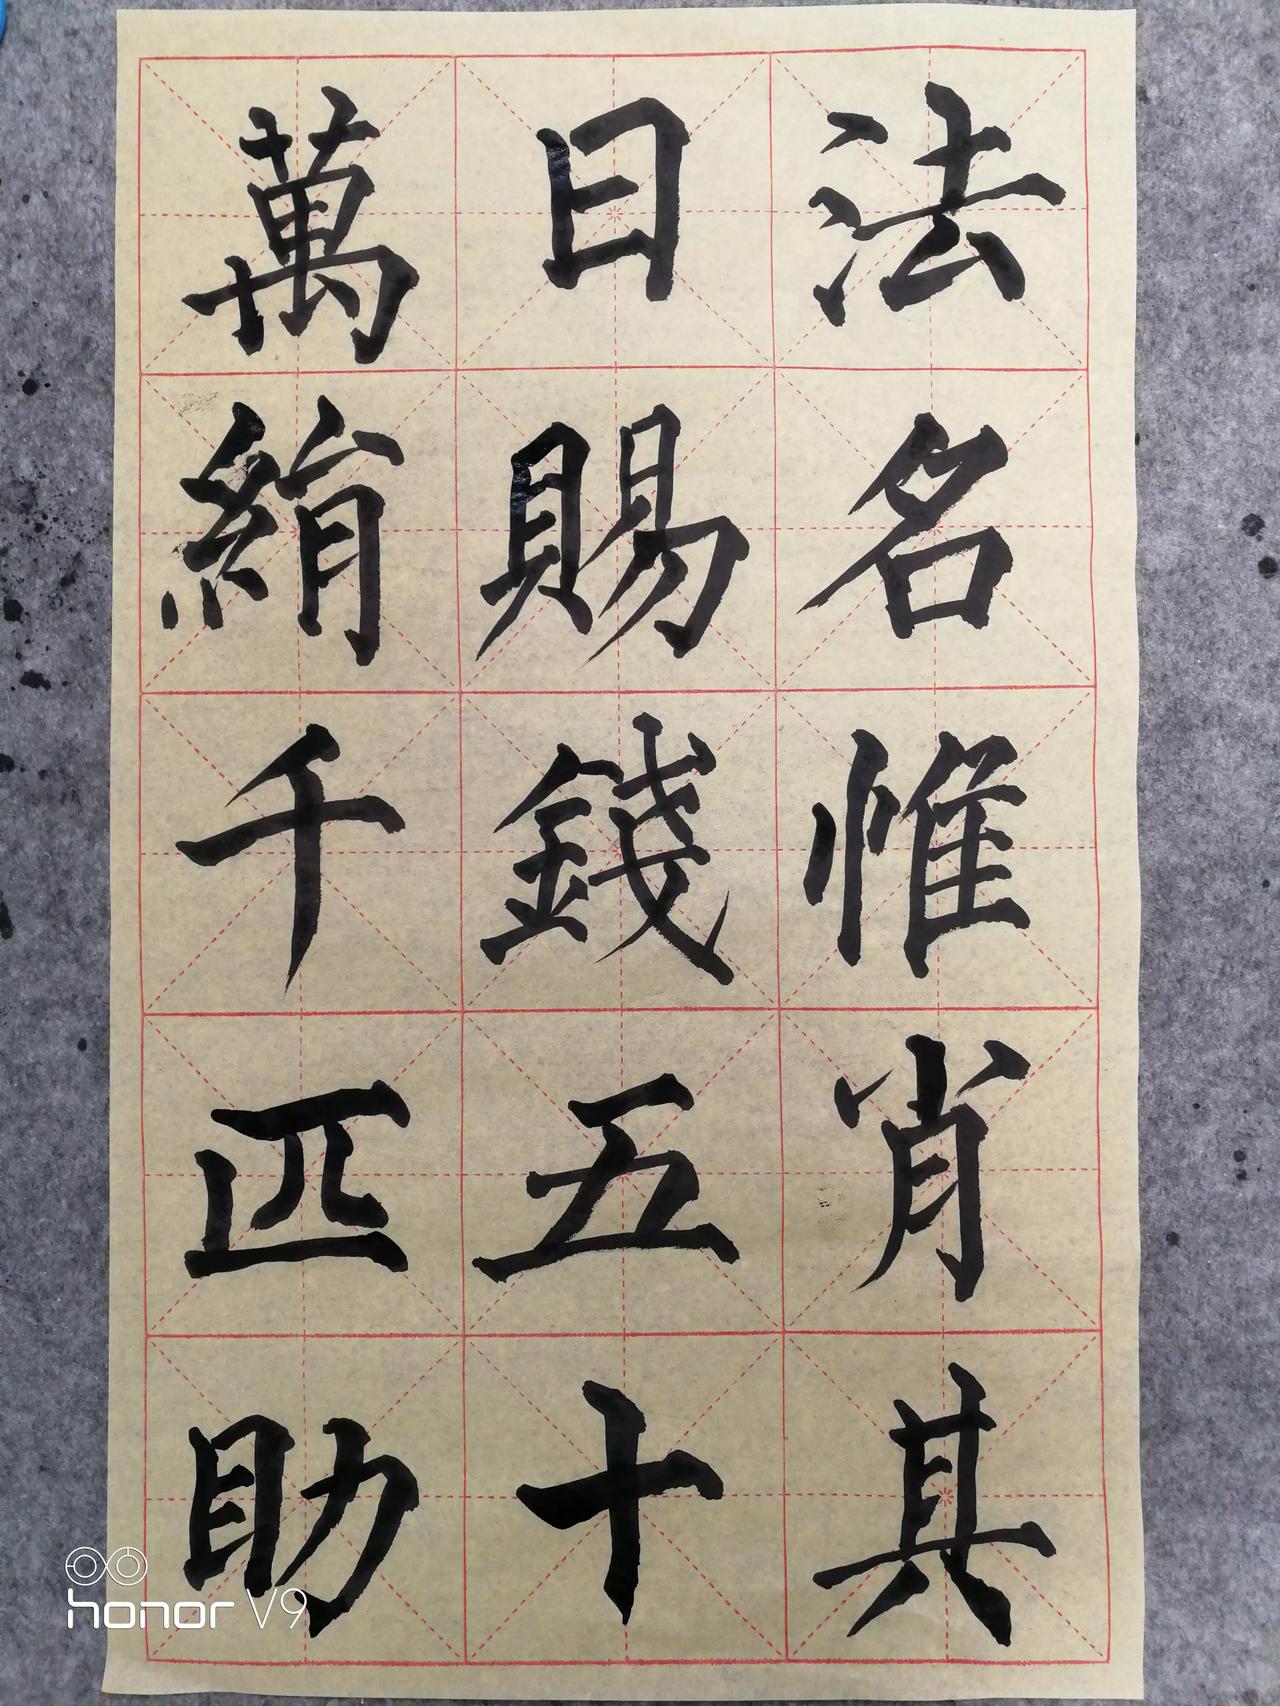 法名惟肖其
日賜錢五十
萬絹千匹助
honor V9